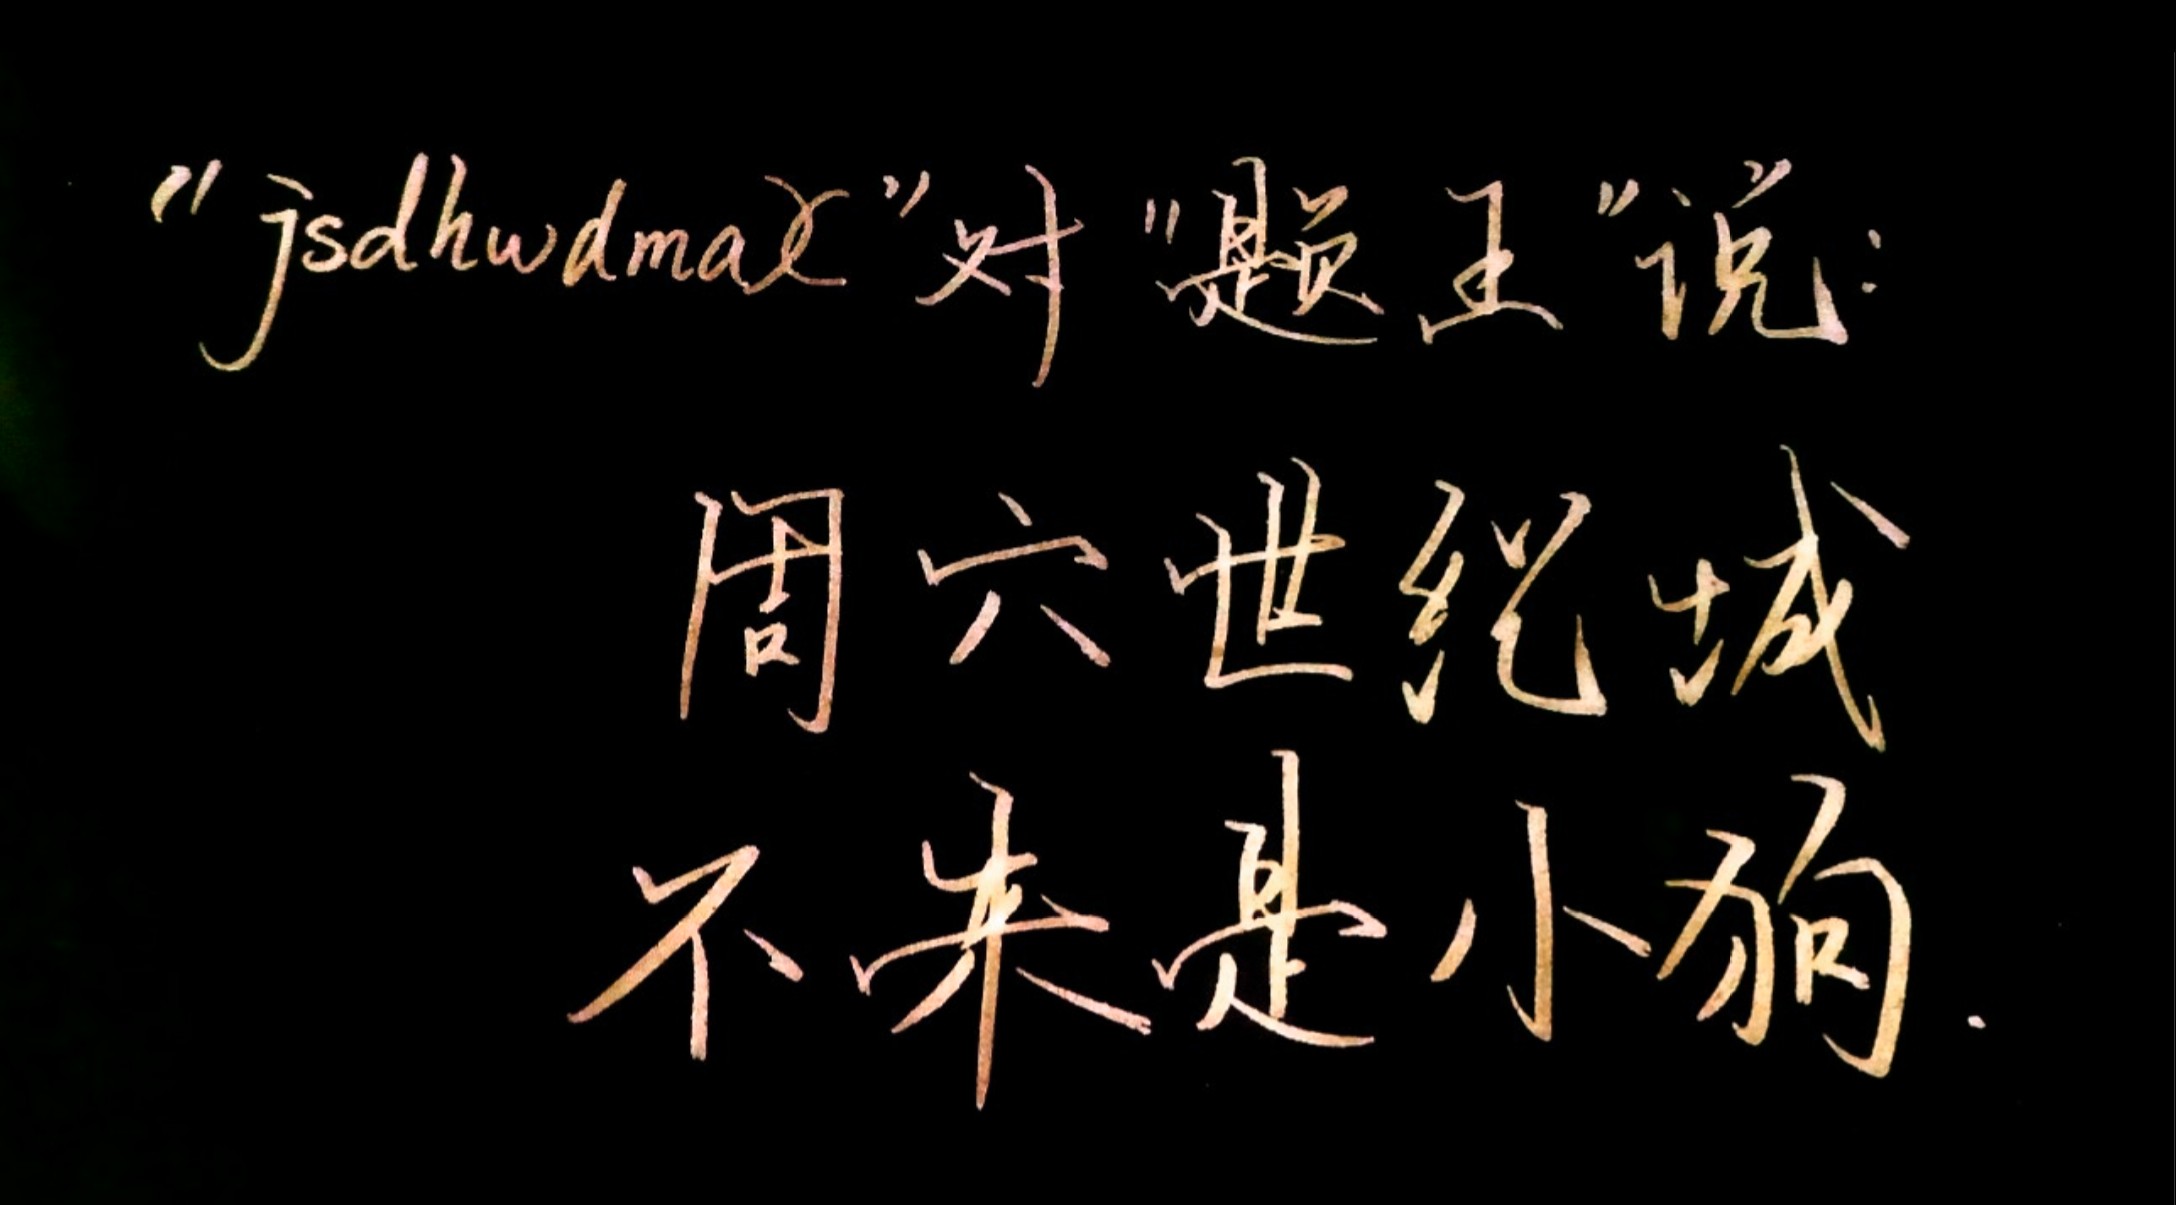 "jsdhwdmax"对"题王"说:
周六世纪城
不来是小狗.